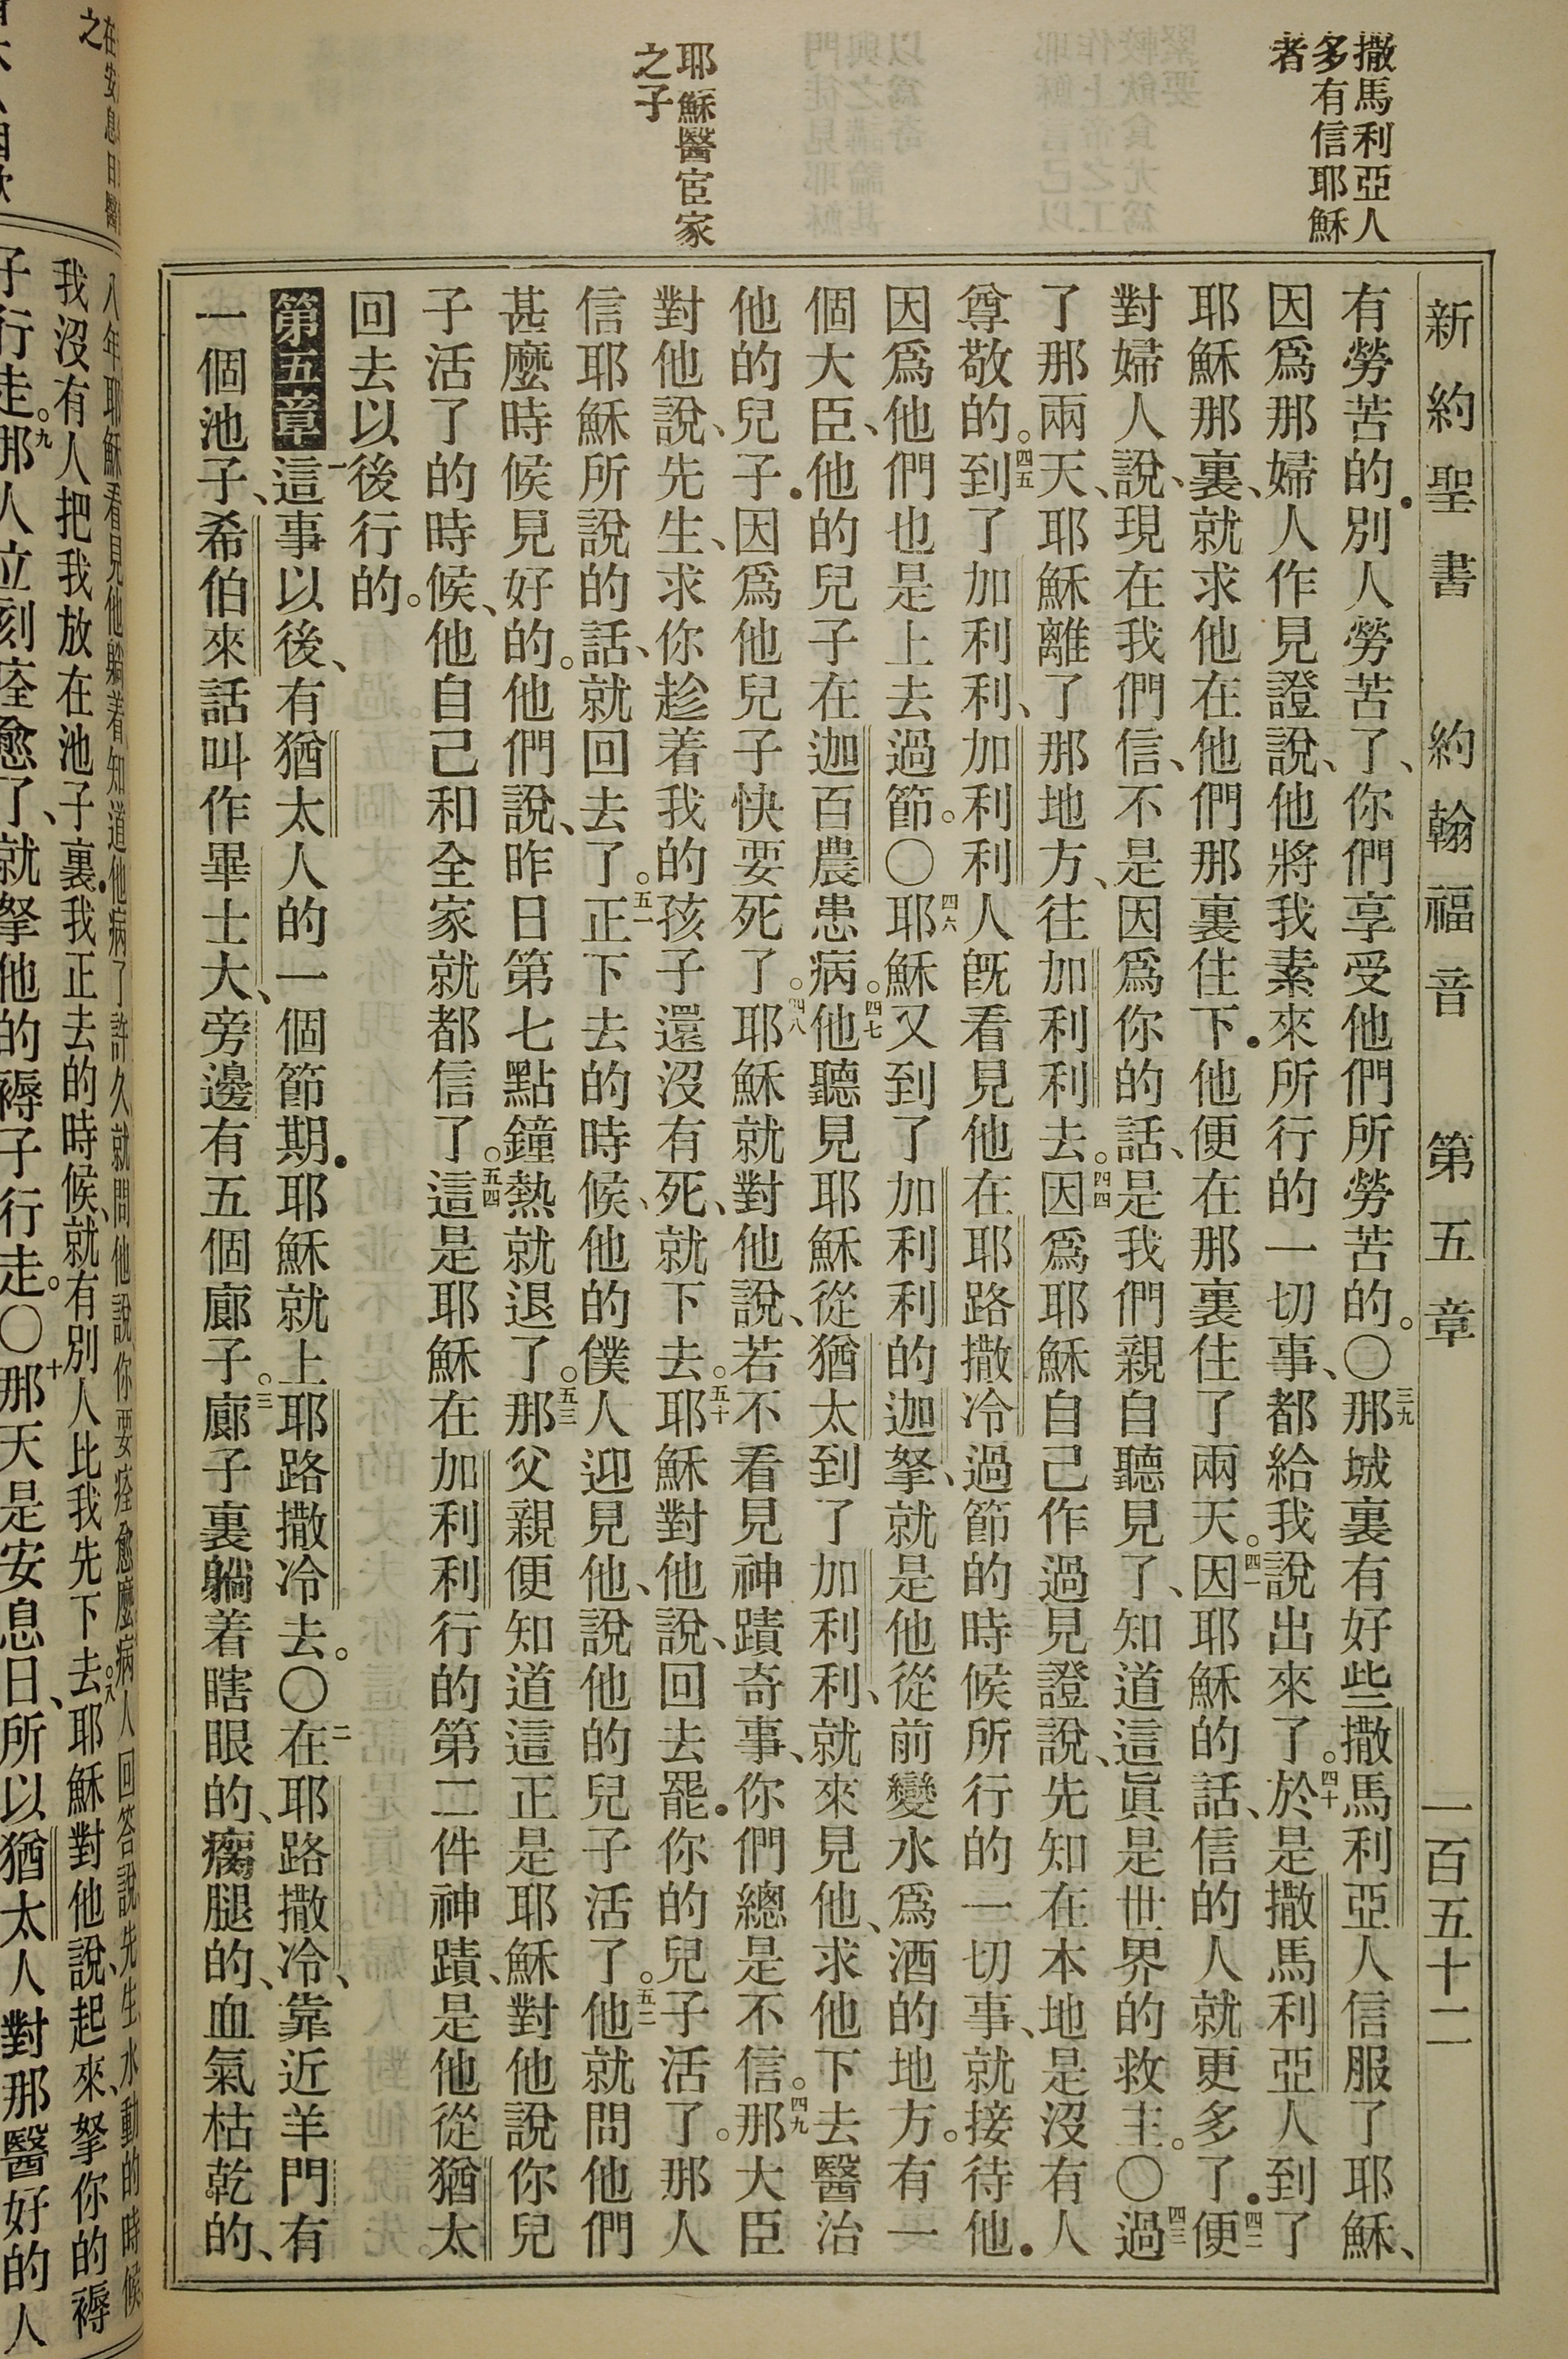 新約聖書 約翰福音 第五章 一百五十二
撒馬利亞人
多有信耶穌
者
耶穌醫宦家
之子
有勞苦的．別人勞苦了、你們享受他們所勞苦的。〇三九那城裏有好些撒馬利亞人信服了耶穌、
因爲那婦人作見證說、他將我素來所行的一切事、都給我說出來了。四十於是撒馬利亞人到了
耶穌那裏、就求他在他們那裏住下．他便在那裏住了兩天。四一因耶穌的話、信的人就更多了．四二便
對婦人說、現在我們信、不是因爲你的話、是我們親自聽見了、知道這眞是世界的救主。〇四三過
了那兩天、耶穌離了那地方、往加利利去。四四因爲耶穌自己作過見證說、先知在本地是沒有人
尊敬的。四五到了加利利、加利利人旣看見他在耶路撒冷過節的時候所行的一切事、就接待他．
因爲他們也是上去過節。〇四六耶穌又到了加利利的迦拏、就是他從前變水爲酒的地方。有一
個大臣、他的兒子在迦百農患病。四七他聽見耶穌從猶太到了加利利、就來見他、求他下去醫治
他的兒子．因爲他兒子快要死了。四八耶穌就對他說、若不看見神蹟奇事、你們總是不信。四九那大臣
對他說、先生、求你趁着我的孩子還沒有死、就下去。五十耶穌對他說、回去罷．你的兒子活了。那人
信耶穌所說的話、就回去了。五一正下去的時候、他的僕人迎見他、說他的兒子活了。五二他就問他們
甚麼時候見好的。他們說、昨日第七點鐘熱就退了。五三那父親便知道這正是耶穌對他說你兒
子活了的時候、他自己和全家就都信了。五四這是耶穌在加利利行的第二件神蹟、是他從猶太
回去以後行的。
第五章 一這事以後、有猶太人的一個節期．耶穌就上耶路撒冷去。〇二在耶路撒冷、靠近羊門有
一個池子、希伯來話叫作畢士大、旁邊有五個廊子。三廊子裏躺着瞎眼的、瘸腿的、血氣枯乾的、
在安息日醫
之
八年耶穌看見他躺着知道他病了許久就問他說你要痊愈麼病人回答說先生水動的時候
我沒有人把我放在池子裏．我正去的時候、就有別人比我先下去。八耶穌對他說、起來、拏你的褥
子行走。九那人立刻痊愈了、就拏他的褥子行走。〇十那天是安息日、所以猶太人對那醫好的人